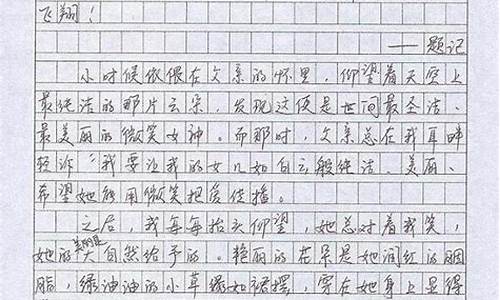 飞翔！
——题记
小时候依偎在父亲的怀里，仰望着天空上
最纯洁的那片云朵，发现这便是世间最圣洁、
最美丽的微笑女神。而那时，父亲总在我耳畔
轻诉“我要让我的女儿如白云般纯洁、美丽、
希望她能用微笑把爱传播。
之后，我每每抬头仰望，她总对着我笑，
她的美丽是大自然给予的。艳丽的花朵是她润红的胭
脂，绿油油的小草缘如裙摆，穿在她身上是得